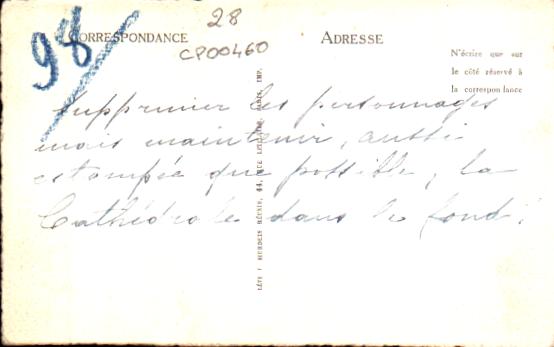 98
28
CORRESPONDANCE
CP00460
ADRESSE
N'écrire que sur
le côté réservé à
la correspon lance
Supprimer les personnages
mais maintenir, aussi
estompée que possible, la
Cathédrale dans le fond.
44, RUE PARIS, IMP.